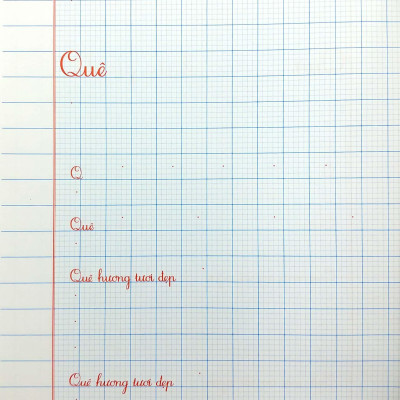 Quê
Q
Quê
Quê hương tươi đẹp
Quê hương tươi đẹp